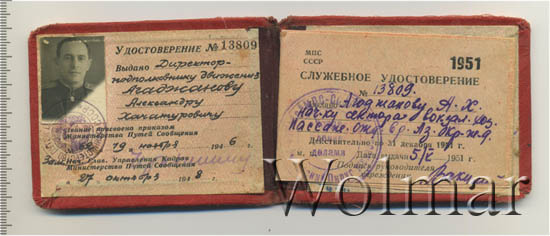 УДОСТОВЕРЕНИЕ № 13809
Выдано Директор-
подполковнику движения
Агаджанову
Александру
Хачатуровичу
звание присвоена приказом
Министерства Путей Сообщения
19 ноября 194 6 г.
Глав. Управления Кадрами
Министерства Путей Сообщения
27 октября 194 8 г.
МПС
СССР
1951
СЛУЖЕБНОЕ УДОСТОВЕРЕНИЕ
№ 13809.
Агаджанову, А. Х.
Нач-ку сектора вокзал. хоз.
Действительно по 31 декабря 1951 г.
Дата выдачи 5/X 1951 г.
Подпись руководителя
учреждения
Wolmar